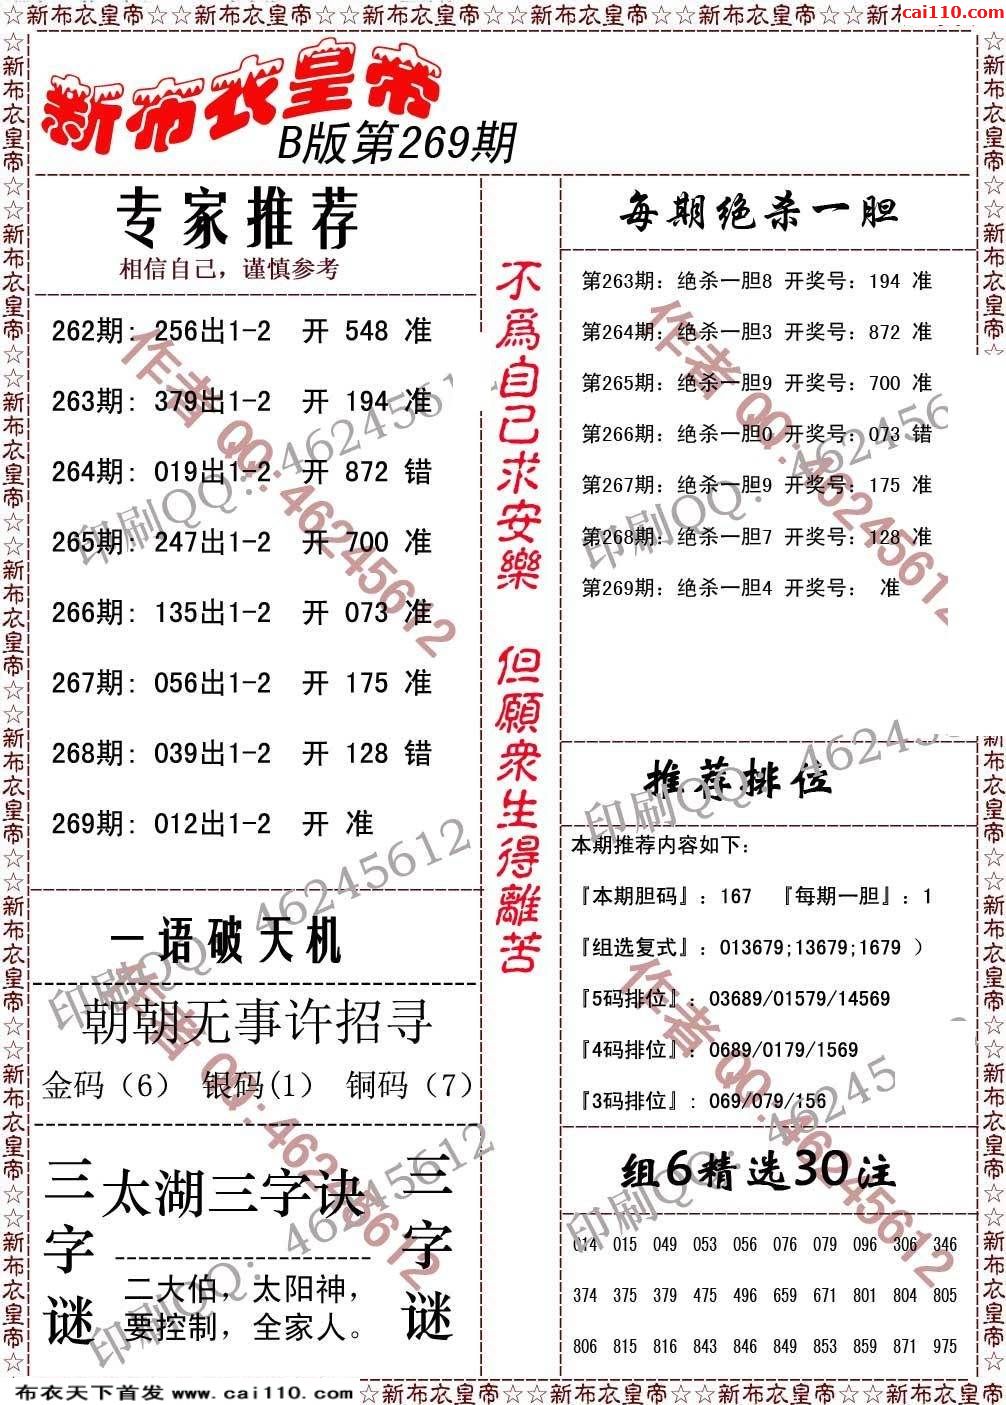 ☆新布衣皇帝☆☆新布衣皇帝☆☆新布衣皇帝☆☆新布衣皇帝☆☆新布衣皇帝☆☆新
cai110.com
新布衣皇帝
B版第269期
专家推荐
相信自己，谨慎参考
262期: 256出1-2 开 548 准
263期: 379出1-2 开 194 准
264期: 019出1-2 开 872 错
265期: 247出1-2 开 700 准
266期: 135出1-2 开 073 准
267期: 056出1-2 开 175 准
268期: 039出1-2 开 128 错
269期: 012出1-2 开 准
一语破天机
朝朝无事许招寻
金码（6） 银码(1） 铜码（7）
三字谜
太湖三字诀
二大伯，太阳神，
要控制，全家人。
三字谜
不為自己求安樂 但願衆生得離苦
每期绝杀一胆
第263期：绝杀一胆8 开奖号：194 准
第264期：绝杀一胆3 开奖号：872 准
第265期：绝杀一胆9 开奖号：700 准
第266期：绝杀一胆0 开奖号：073 错
第267期：绝杀一胆9 开奖号：175 准
第268期：绝杀一胆7 开奖号：128 准
第269期：绝杀一胆4 开奖号： 准
推荐排位
本期推荐内容如下：
『本期胆码』：167 『每期一胆』：1
『组选复式』：013679;13679;1679 ）
『5码排位』：03689/01579/14569
『4码排位』：0689/0179/1569
『3码排位』: 069/079/156
组6精选30注
014 015 049 053 056 076 079 096 306 346
374 375 379 475 496 659 671 801 804 805
806 815 816 843 846 849 853 859 871 975
作者 QQ:46245612
印刷QQ：46245612
布衣天下首发 www.cai110.com
☆新布衣皇帝☆☆新布衣皇帝☆☆新布衣皇帝☆☆新布衣皇帝☆